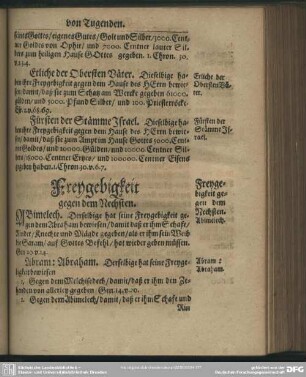 von Tugenden.
seines Gottes/ eigenes Gutes/ Gold und Silber/ 3000. Cent-
ner Goldes von Ophir/ und 7000. Centner lauter Sil-
bers zum heiligen Hause GOttes gegeben. 1. Chron. 30.
v. 3.4.
Etliche der Obersten Väter. Dieselbige ha-
ben ihre Freygebigkeit gegen dem Hause des HErrn bewie-
sen/ damit/ daß sie zum Schatz am Wercke gegeben
Gülden/ und 5000. Pfund Silber/ und 100. Priesterröcke
Etliche der
Obersten Vä-
ter.
Fürsten der Stämme Israel. Dieselbige ha-
ben ihre Freygebigkeit gegen dem Hause des HErrn bewie-
sen/ damit/ daß sie zum Ampt im Hause Gottes 5000. Cent-
ner Goldes/ und 10000. Gülden/ und 10000. Centner Sil-
bers/ 18000. Centner Ertzes/ und 100000. Centner Eisens
gegeben haben. 1. Chron. 30. v. 6.7.
Fürsten der
Stämme Is-
rael.
Freygebigkeit
gegen dem Nechsten.
Freyge-
bigkeit ge-
gen dem
Nechsten.
Abimelech.
ABimelech. Derselbige hat seine Freygebigkeit ge-
gen dem Abraham bewiesen/ damit/ daß er ihm Schafe/
Rinder/ Knechte und Mägde gegeben/ als er ihm sein Weib/
die Saram/ auf Gottes Befehl/ hat wieder geben müssen.
Gen. 20. v. 14.
Abram: Abraham. Derselbige hat seine Freyge-
bigkeit bewiesen
Abram:
Abraham.
1. Gegen dem Melchisedech/ damit/ daß er ihm den Ze-
henden von allerley gegeben. Gen. 14. v. 20.
2. Gegen dem Abimelech/ damit/ daß er ihm Schafe und
Rin-